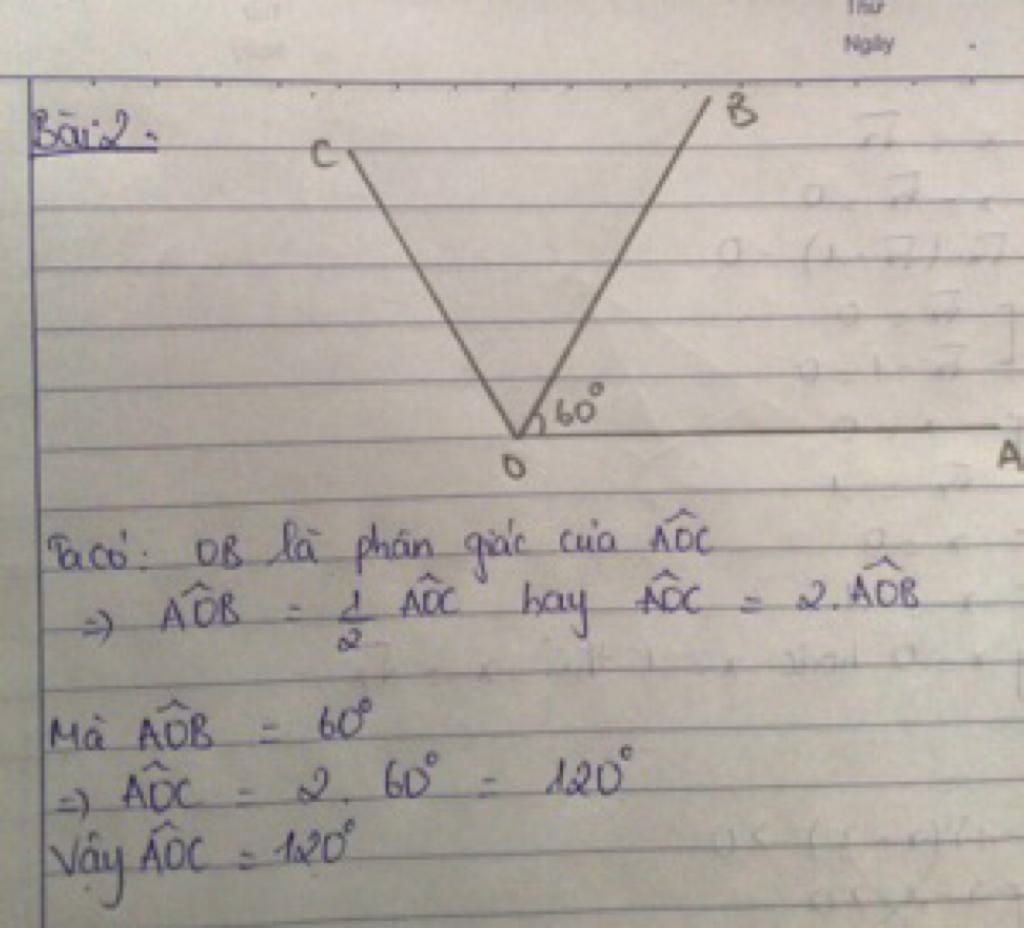 Thứ
Ngày
Bài 2:
C
B
60°
O
A
Ta có: OB là phân giác của AÔC
=> AÔB = 1/2 AÔC hay AÔC = 2. AÔB
Mà AÔB = 60°
=> AÔC = 2. 60° = 120°
Vậy AÔC = 120°